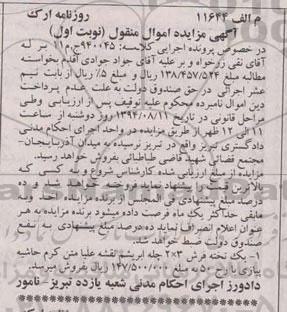 م الف ۱۱۶۴۴ روزنامه ارک
آگهی مزایده اموال منقول (نوبت اول)
در خصوص پرونده اجرایی کلاسه: ۹۴۰۰۴۵ج۱۱۰ بر له
آقای نقی روحواه و بر علیه آقای جواد جوادی اقدم بخواسته
مطالبه مبلغ ۱۳۸/۴۵۷/۵۲۴ ریال و مبلغ ۵٪ ریال از بابت نیم
عشر اجرائی در حق صندوق دولت به علت عدم پرداخت
دین اموال نامبرده محکوم علیه توقیف پس از ارزیابی وطی
مراحل قانونی در تاریخ ۱۳۹۴/۰۸/۱۱ روز دوشنبه از ساعت
۱۱ الی ۱۲ ظهر از طریق مزایده در واحد اجرای احکام مدنی
دادگستری تبریز واقع در تبریز نرسیده به میدان آذربایجان-
مجتمع قضائی شهید قاضی طباطبائی بفروش خواهد رسید.
مزایده از مبلغ ارزیابی شده کارشناس شروع و به کسی که
بالاترین قیمت پیشنهاد نماید فروخته خواهد شد و ده
درصد مبلغ پیشنهادی فی المجلس از برنده مزایده اخذ و به
مابقی حداکثر یک ماه فرصت داده میشود برنده مزایده به هر
عنوان اعلام انصراف نماید ده درصد مبلغ پیشنهادی به نفع
صندوق دولت ضبط خواهد شد.
۱- یک تخته فرش ۳×۲ چله ابریشم نقشه علیا متن کرم حاشیه
پیازی با رج ۵۰ به مبلغ ۱۴۷/۵۰۰/۰۰۰ ریال بفروش میرسد.
دادورز اجرای احکام مدنی شعبه یازده تبریز - نامور